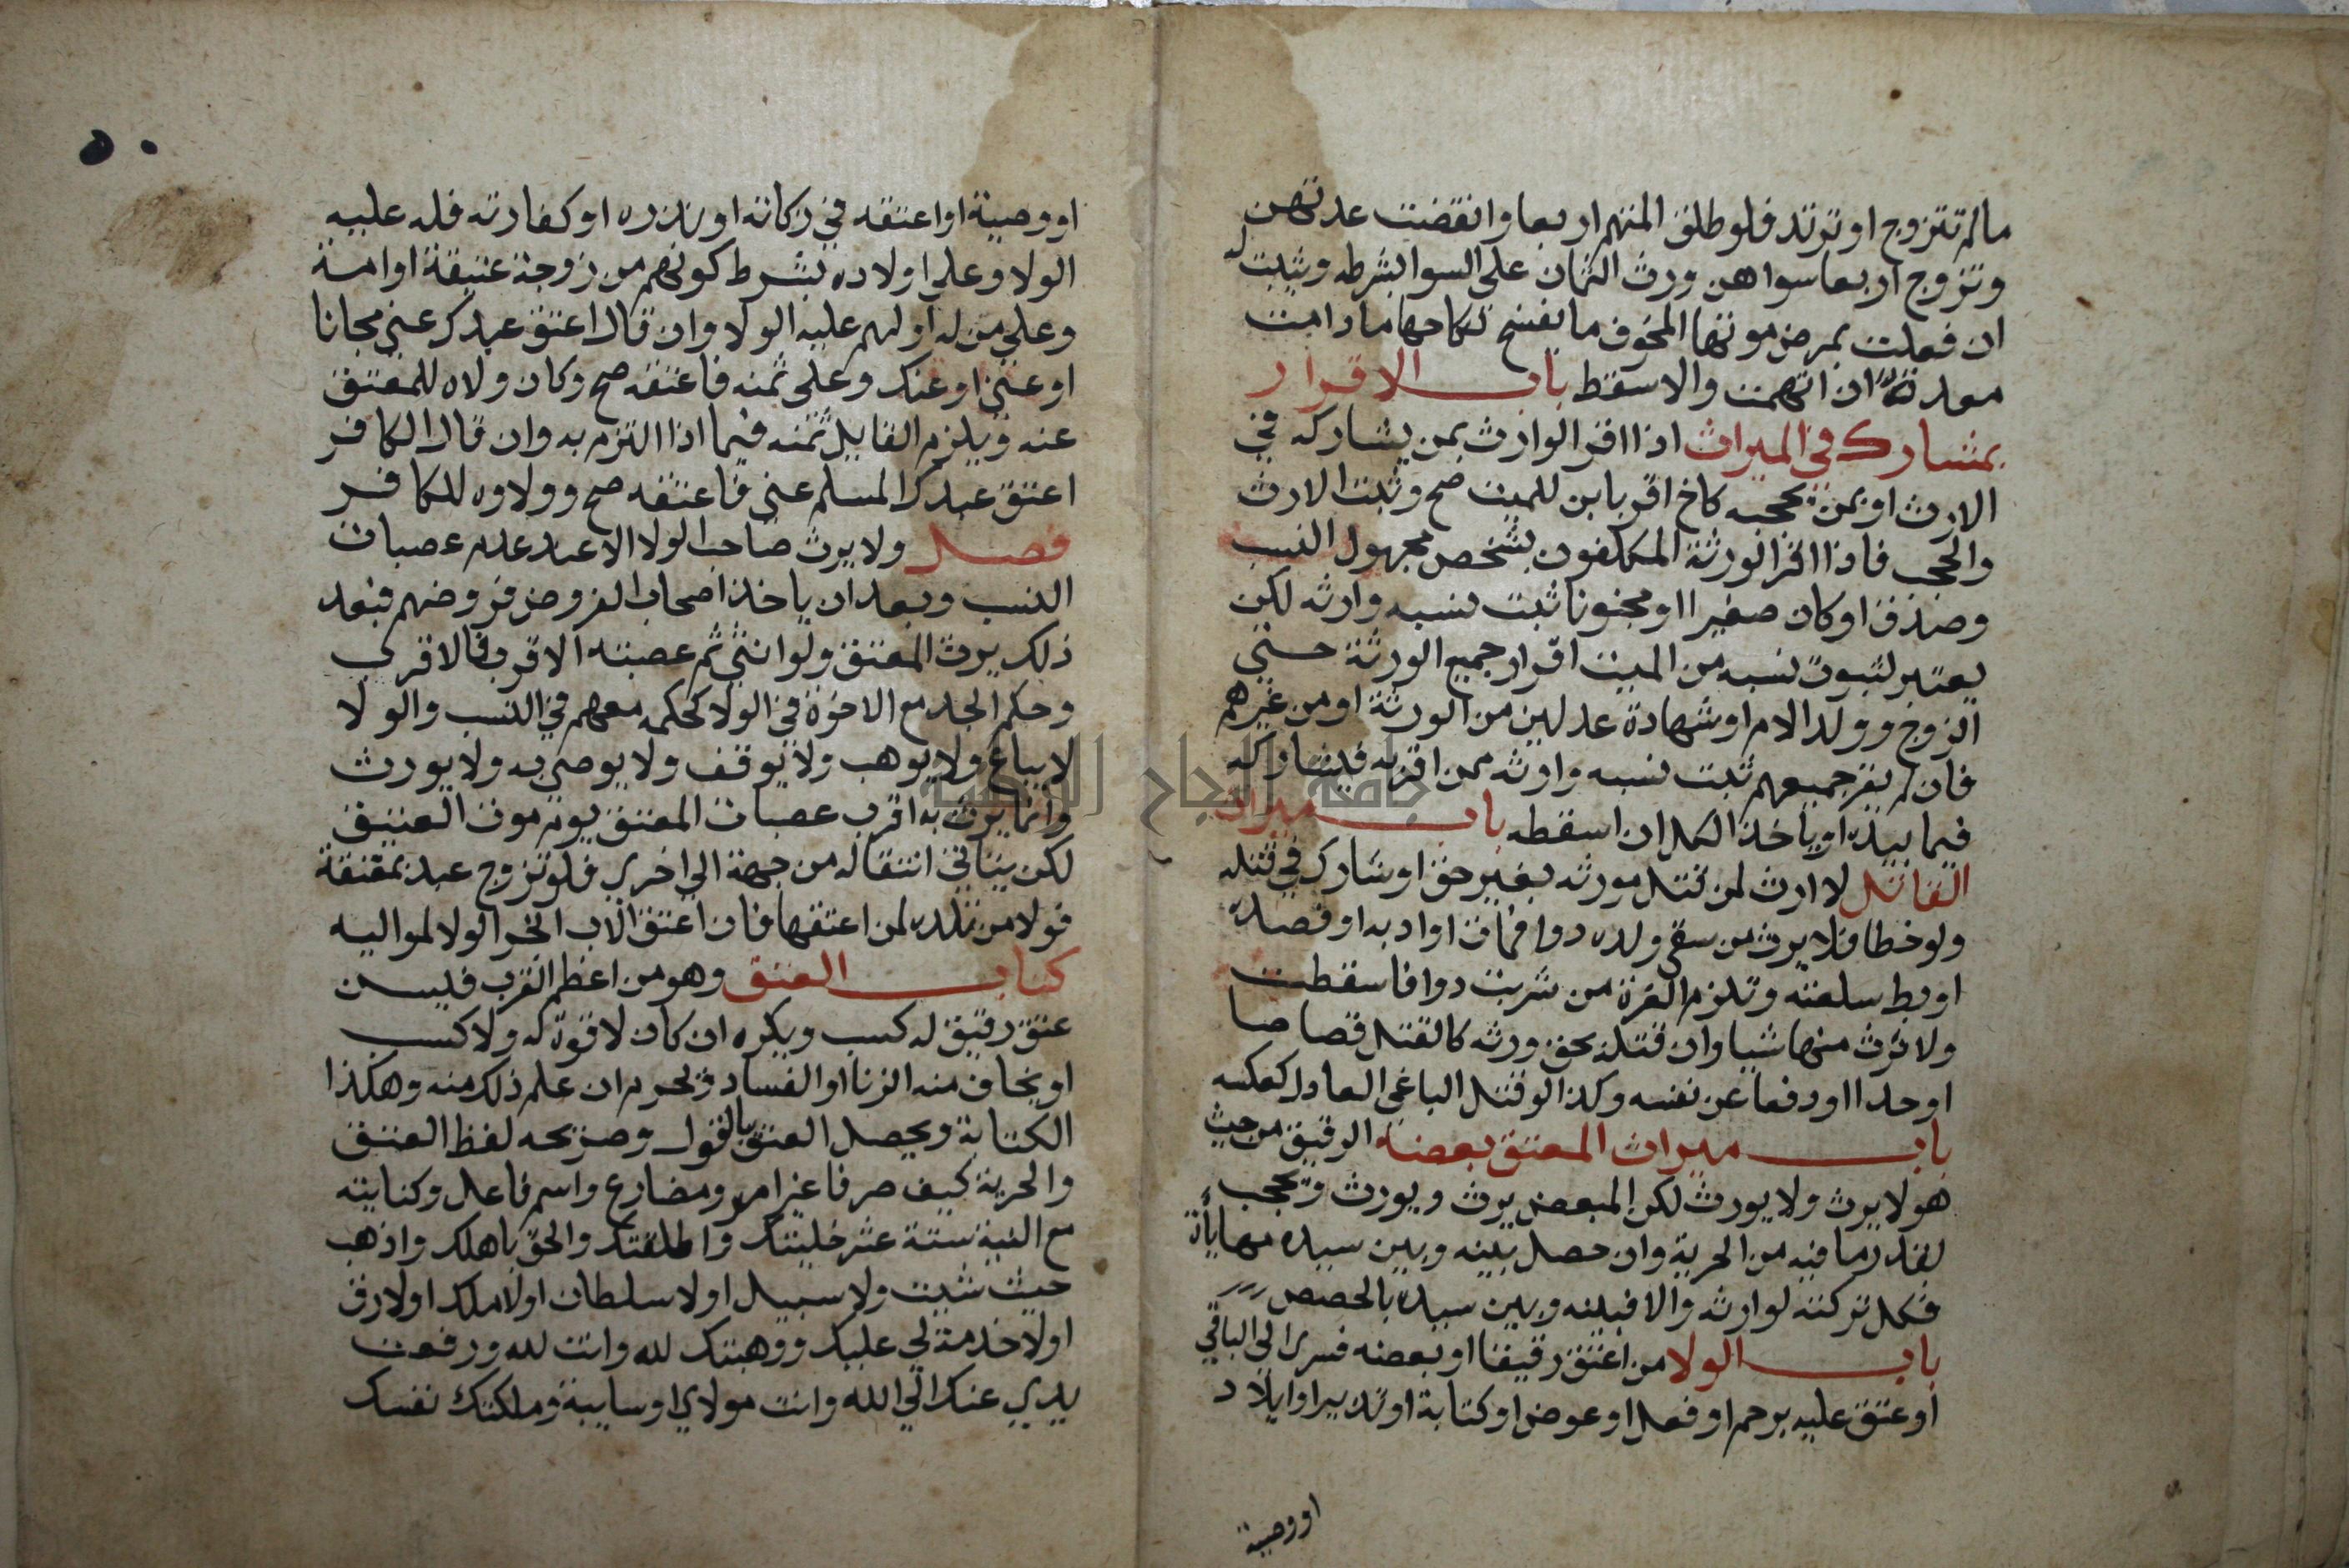 مالم تتزوج او ترتد فلو طلق المتهم اربعا وانقضت عدتهن
وتزوج اربعا سواهن ورث الثمان على السوا بشرطه ويثبت له
ان فعلت بمرض موتها المخوف ما يفسخ نكاحها ما دامت
معدتة ان اتهمت والا سقط باب الاقرار
بمشارك في الميراث اذا اقر الوارث بمن يشاركه في
الارث او بمن يحجبه كاخ اقر بابن للميت صح وثبت الارث
والحجب فاذا اقر الورثة المكلفون بشخص مجهول النسب
وصدق او كان صغيرا او مجنونا ثبت نسبه وارثه لكن
يعتبر لثبوت نسبه من الميت اقرار جميع الورثة حتى
الزوج وولد الام او شهادة عدلين من الورثة او من غيرهم
فان لم يقر جميعهم ثبت نسبه وارثه ممن اقر به فيشاركه
فيما بيده او ياخذ الكل ان اسقطه باب ميراث
القاتل لا ارث لمن قتل مورثه بغير حق او شارك في قتله
ولو خطا فلا يرث من سقى ولده دوا فمات او ادبه او فصده
او بط سلعته وتلزم الغرة من شربت دوا فاسقطت
ولا ترث منها شيا وان قتله بحق ورثه كالقتل قصاصا
او حدا او دفعا عن نفسه وكذا لو قتل الباغي العادل كعكسه
باب ميراث المعتق بعضه الرقيق من حيث
هو لا يرث ولا يورث لكن المبعض يرث ويورث ويحجب
بقدر ما فيه من الحرية وان حصل بينه وبين سيده مهاياة
فكل تركته لوارثه والا فبينه وبين سيده بالحصص
باب الولا من اعتق رقيقا او بعضه فسرى الى الباقي
او عتق عليه برحم او فعل او عوض او كتابة او تدبير او ايلاد
او وصية
٥٠
او وصية او اعتقه في زكاته او نذره او كفارته فله عليه
الولا وعلى اولاده بشرط كونهم من زوجة عتيقة او امة
وعلى من له او لهم عليه الولا وان قال اعتق عبدك عني مجانا
او عني او عنك وعلى ثمنه فاعتقه صح وكان ولاه للمعتق
عنه ويلزم القايل ثمنه فيما اذا التزم به وان قال الكافر
اعتق عبدك المسلم عني فاعتقه صح وولاوه للكافر
فصل ولا يرث صاحب الولا الا عند عدم عصبات
النسب وبعد ان ياخذ اصحاب الفروض فروضهم فبعد
ذلك يرث المعتق ولو انثى ثم عصبته الاقرب فالاقرب
وحكم الجد مع الاخوة في الولا كحكمه معهم في النسب والولا
لا يباع ولا يوهب ولا يوقف ولا يوصى به ولا يورث
وانما يرث به اقرب عصبات المعتق يوم موت العتيق
لكن يتاتى انتقاله من جهة الى اخرى فلو تزوج عبد بمعتقة
فولا من تلده لمن اعتقها فان اعتق الاب انجر الولا لمواليه
كتاب العتق وهو من اعظم القرب فيسن
عتق رقيق له كسب ويكره ان كان لا قوة له ولا كسب
او يخاف منه الزنا او الفساد ويحرم ان علم ذلك منه وهكذا
الكتابة ويحصل العتق بالقول وصريحه لفظ العتق
والحرية كيف صرفا غير امر ومضارع واسم فاعل وكنايته
مع النية ستة عشر خليتك واطلقتك والحق باهلك واذهب
حيث شيت ولا سبيل او لا سلطان او لا ملك او لا رق
او لا خدمة لي عليك ووهبتك لله وانت لله ورفعت
يدي عنك الى الله وانت مولاي او سايبة وملكتك نفسك
جامعة النجاح الوطنية